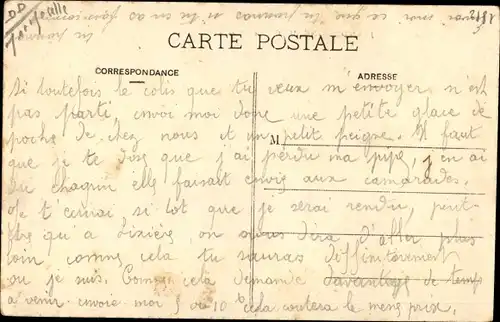 DD
Marseille
CARTE POSTALE
CORRESPONDANCE
ADRESSE
M
Si toutefois le colis que tu veux m'envoyer n'est
pas parti envoi moi donc une petite glace de
poche de chez nous et un petit peigne. Il faut
que je te dise que j'ai perdu ma pipe, j'en ai
du chagrin elle faisait envie aux camarades.
Je t'écrirai si tot que je serai rendu, peut-
être qu'a on nous dira d'aller plus
loin comme cela tu sauras diffinitivement
ou je suis. Comme cela demande davantage de temp
a venir envoie moi 5 ou 10 cela coutera le meme prix.
moi ce que tu pourras si tu en as